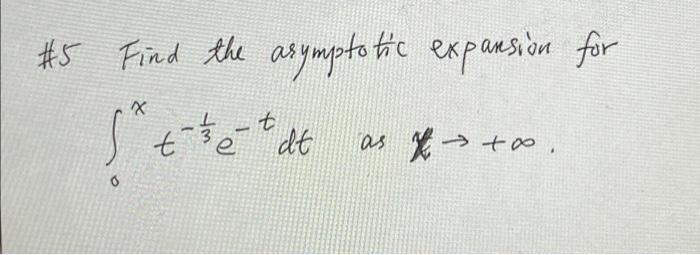 #5 Find the asymptotic expansion for
∫₀ˣ t^{-1/3} e^{-t} dt as x → +∞.